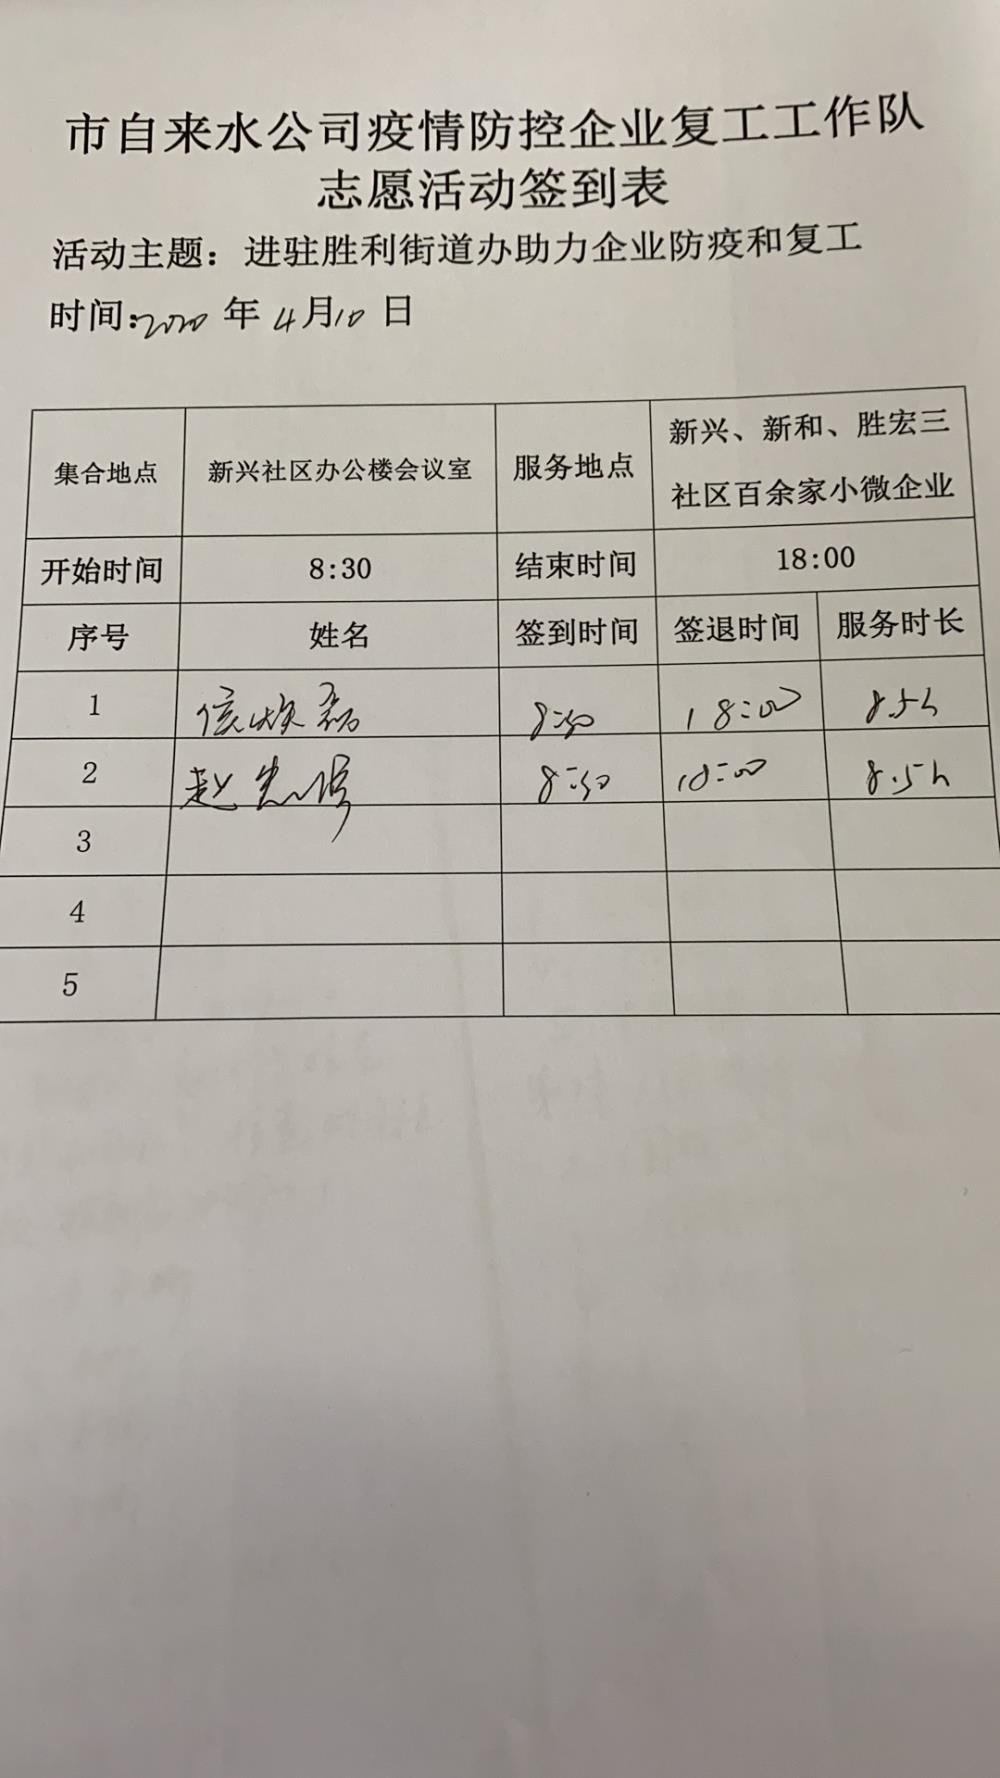 市自来水公司疫情防控企业复工工作队
志愿活动签到表
活动主题：进驻胜利街道办助力企业防疫和复工
时间：2020 年 4月10 日
集合地点 新兴社区办公楼会议室 服务地点 新兴、新和、胜宏三
社区百余家小微企业
开始时间 8:30 结束时间 18:00
序号 姓名 签到时间 签退时间 服务时长
1 磊 8:30 18:00 8.5h
2 赵 8:30 18:00 8.5h
3
4
5